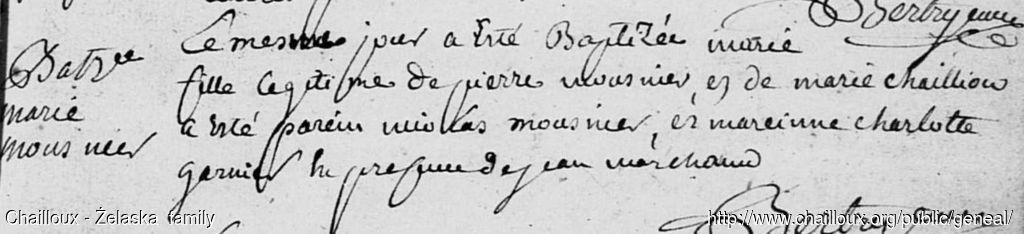 Bertry curé
Batze
marie
mousnier
Le mesme jour a esté Baptizée marie
fille legitime de pierre mousnier, et de marie chailliou
a esté parein nicolas mousnier, et mareinne charlotte
garnier En presence de jean marchand
Bertry curé
Chailloux - Żelaska family
http://www.chailloux.org/public/geneal/